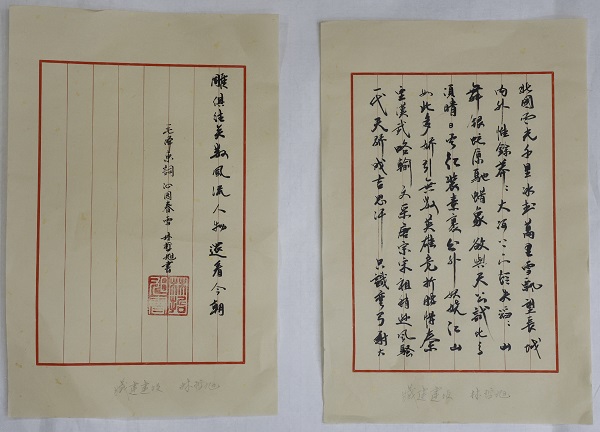 北國風光千里冰封萬里雪飄望長城
内外惟餘莽〻大河上下頓失滔〻山
舞銀蛇原馳蠟象欲與天公試比高
須晴日看紅裝素裹分外妖嬈江山
如此多嬌引無數英雄競折腰惜秦
皇漢武略輸文采唐宗宋祖稍遜風騷
一代天驕成吉思汗 只識彎弓射大
雕俱往矣數風流人物還看今朝
毛澤東詞沁園春雪 林 書